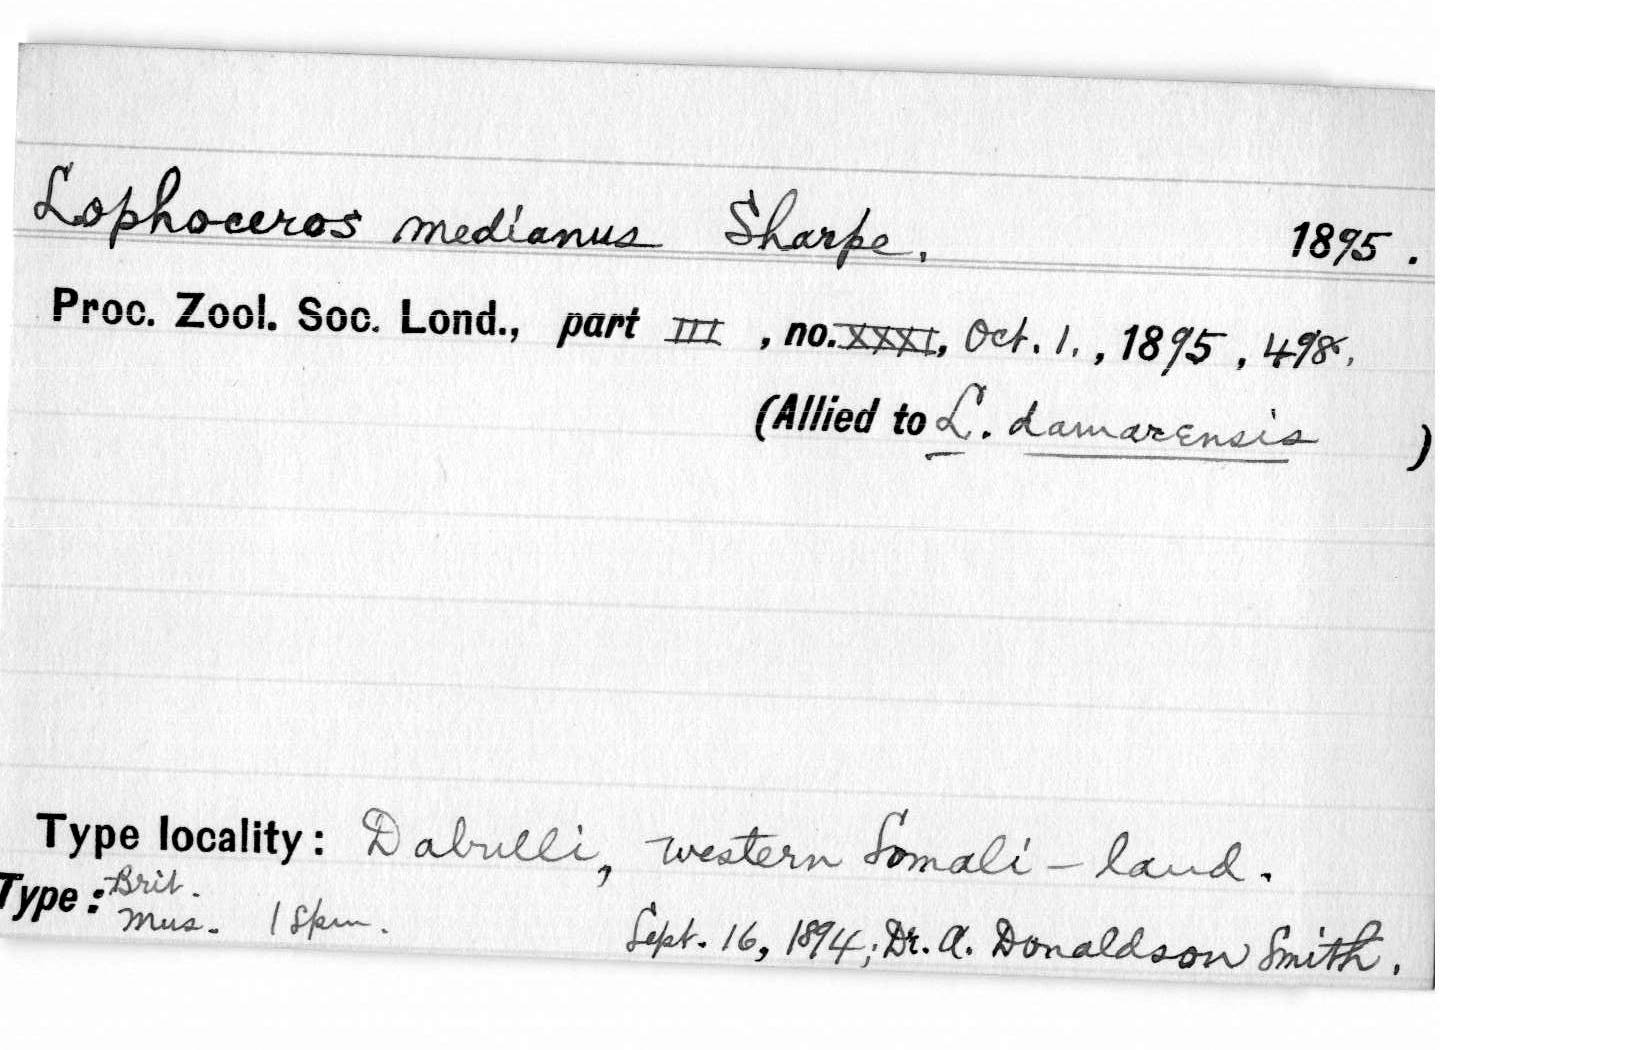 Lophoceros medianus Sharpe, 1895.
Proc. Zool. Soc. Lond., part III, no. XXXI, Oct. 1., 1895, 498.
(Allied to L. damarensis)
Type locality: Dabulli, western Somali-land.
Type: Brit. Mus. 1 spm. Sept. 16, 1894; Dr. A. Donaldson Smith.